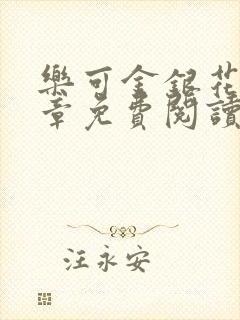 樂可金銀花
章免費閱讀
汪永安